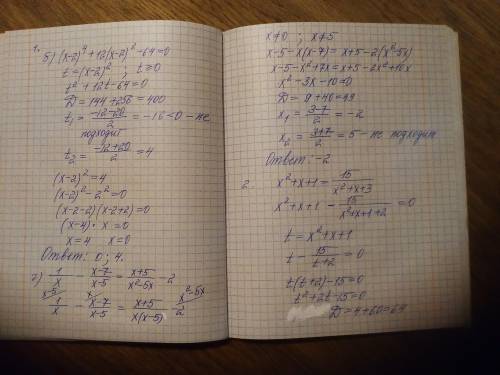 1.
б) (x-2)⁴ + 12(x-2)² - 64 = 0
t = (x-2)² ; t ≥ 0
t² + 12t - 64 = 0
D = 144 + 256 = 400
t₁ = (-12-20)/2 = -16 < 0 - не
подходит
t₂ = (-12+20)/2 = 4
(x-2)² = 4
(x-2)² - 2² = 0
(x-2-2)(x-2+2) = 0
(x-4) · x = 0
x = 4 x = 0
Ответ: 0; 4.
г) 1/x - (x-7)/(x-5) = (x+5)/(x²-5x) - 2
x-5 x x²-5x
1/x - (x-7)/(x-5) = (x+5)/(x(x-5)) - 2
x ≠ 0 ; x ≠ 5
x-5-x(x-7) = x+5-2(x²-5x)
x-5-x²+7x = x+5-2x²+10x
x² - 3x - 10 = 0
D = 9 + 40 = 49
x₁ = (3-7)/2 = -2
x₂ = (3+7)/2 = 5 - не подходит
Ответ: -2
2. x²+x+1 = 15/(x²+x+3)
x²+x+1 - 15/(x²+x+1+2) = 0
t = x²+x+1
t - 15/(t+2) = 0
t(t+2)-15=0
t²+2t-15=0
D = 4+60=64